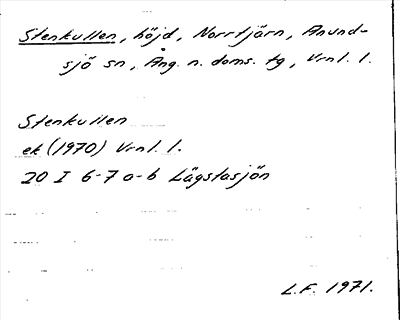 Stenkullen, höjd, Norrtjärn, Anund-
sjö sn, Ång. n. doms. tg, Vrnl. l.
Stenkullen
ek (1970) Vrnl. l.
20 I 6-7 a-b Lägstasjön
L.F. 1971.